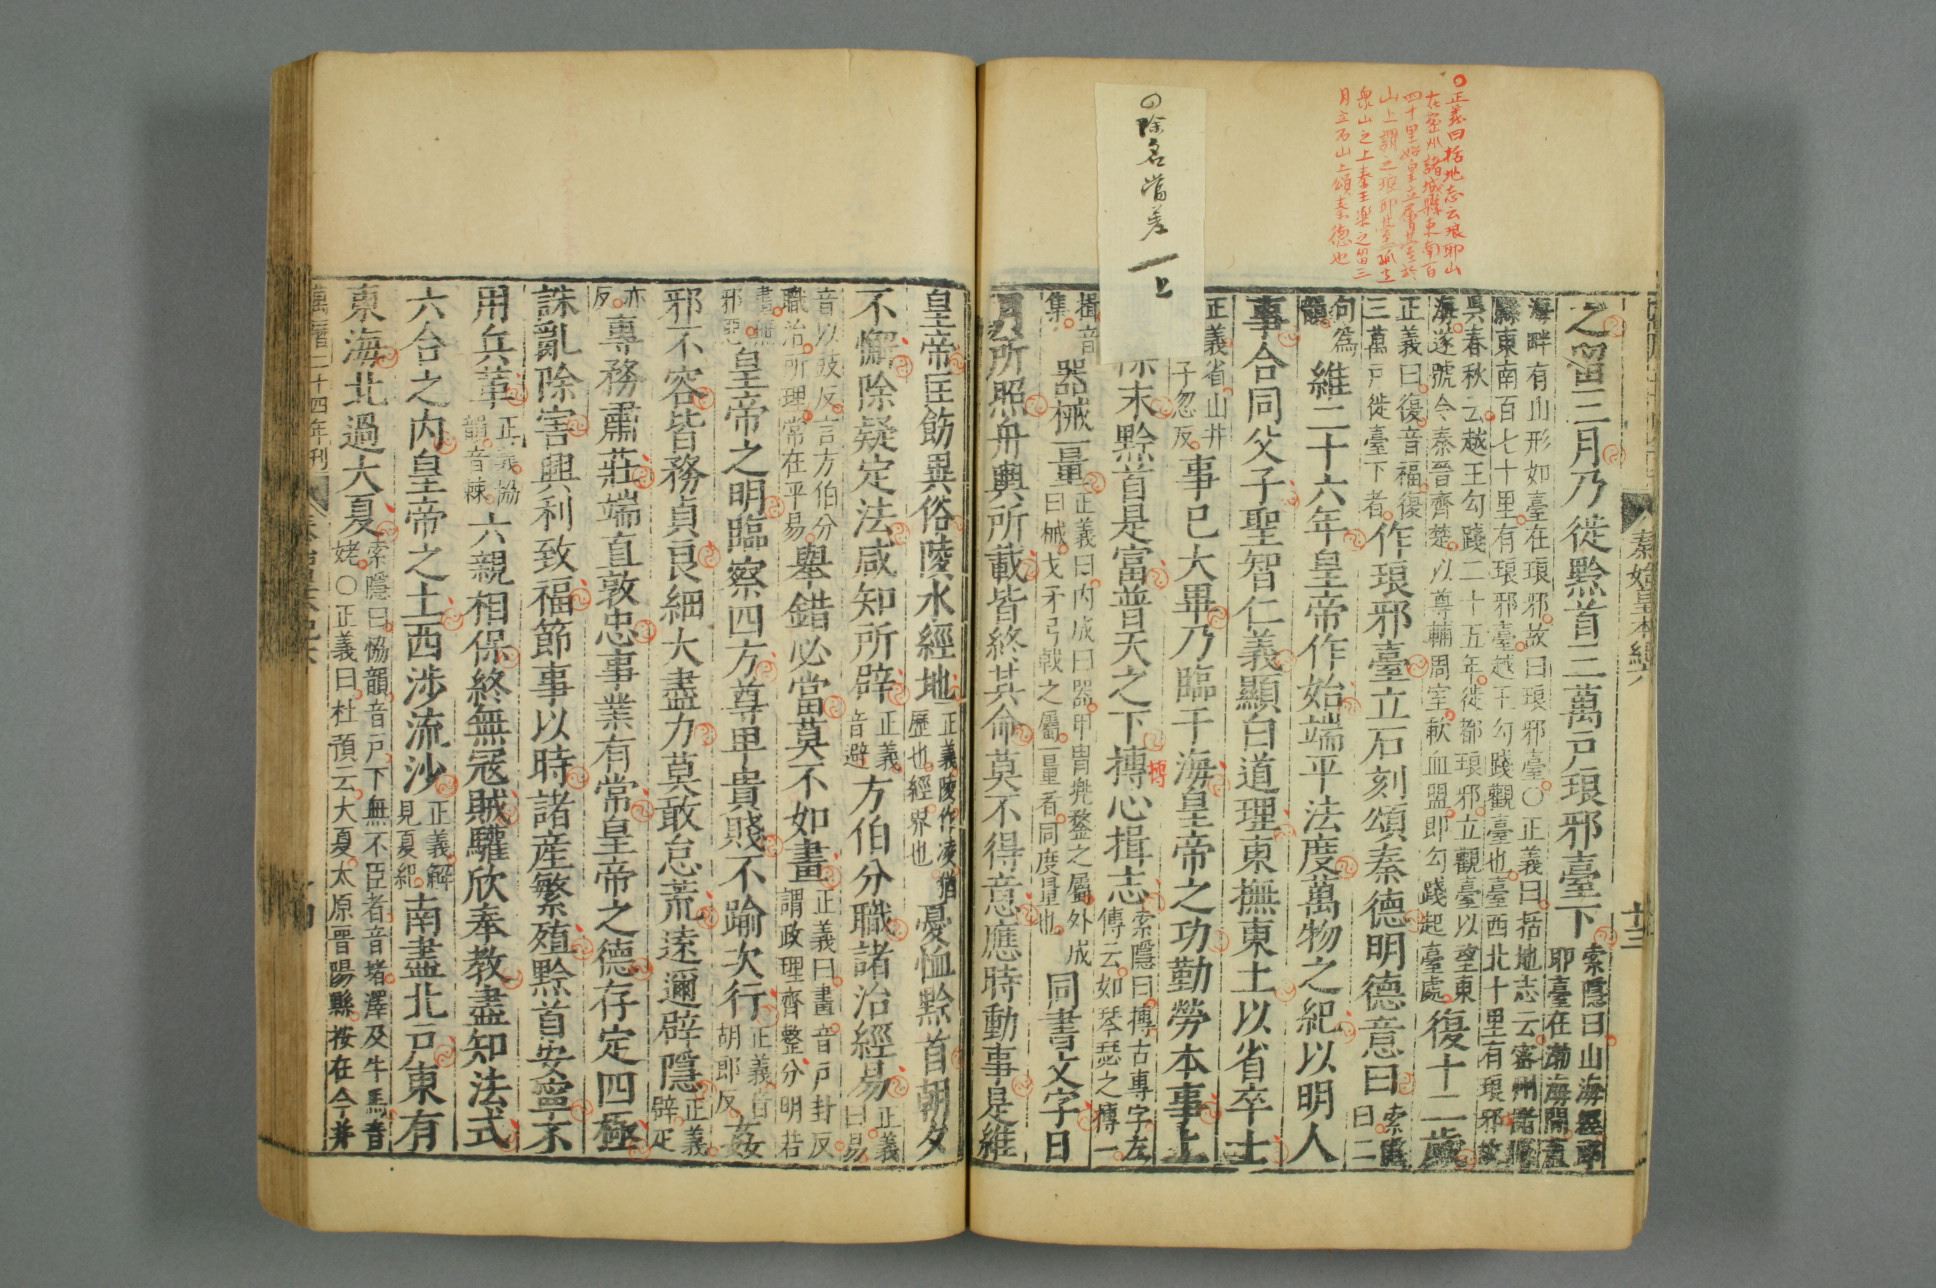 ○正義曰括地志云琅耶山
在密州諸城縣東南百
四十里始皇立層臺於
山上謂之琅耶臺孤立
衆山之上秦王樂之留三
月立石山上頌秦德也
除名當差
上
秦始皇本紀六
廿三
之留三月乃徙黔首三萬戶琅邪臺下
索隱曰山海經琅
耶臺在渤海間蓋
海畔有山形如臺在琅邪故曰琅邪臺○正義曰括地志云密州諸城
縣東南百七十里有琅邪臺越王勾踐觀臺也臺西北十里有琅邪故
吳春秋云越王勾踐二十五年徙都琅邪立觀臺以望東
海遂號令秦晉齊楚以尊輔周室歃血盟即勾踐起臺處
復十二歲
正義曰復音福復
三萬戶徙臺下者
作琅邪臺立石刻頌秦德明德意曰
索隱
曰二
句爲
韻
維二十六年皇帝作始端平法度萬物之紀以明人
事合同父子聖智仁義顯白道理東撫東土以省卒士
正義省山井
子忽反
事已大畢乃臨于海皇帝之功勤勞本事上
末黔首是富普天之下摶心揖志
摶
索隱曰摶古專字左
傳云如琴瑟之摶一
揖音
集
器械一量
正義曰內成曰器甲冑兜鍪之屬外成
曰械戈矛弓戟之屬一量者同度量也
同書文字日
月所照舟輿所載皆終其命莫不得意應時動事是維
皇帝匡飭異俗陵水經地
正義陵作凌猶
歷也經界也
憂恤黔首朝夕
不懈除疑定法咸知所辟
正義
音避
方伯分職諸治經易
正義
曰易
音以豉反言方伯分
職治所理常在平易
舉錯必當莫不如畫
正義曰畫音戶卦反
謂政理齊整分明若
畫無
邪惡
皇帝之明臨察四方尊卑貴賤不踰次行
正義音
胡郎反
姦
邪不容皆務貞良細大盡力莫敢怠荒遠邇辟隱
正義
辟疋
亦
反
專務肅莊端直敦忠事業有常皇帝之德存定四極
誅亂除害興利致福節事以時諸產繁殖黔首安寧不
用兵革
正義協
韻音棘
六親相保終無寇賊驩欣奉教盡知法式
六合之內皇帝之土西涉流沙
正義解
見夏紀
南盡北戶東有
東海北過大夏
索隱曰協韻音戶下無不臣者音堵澤及牛馬音
姥○正義曰杜預云大夏太原晉陽縣按在今并
萬曆二十四年刊